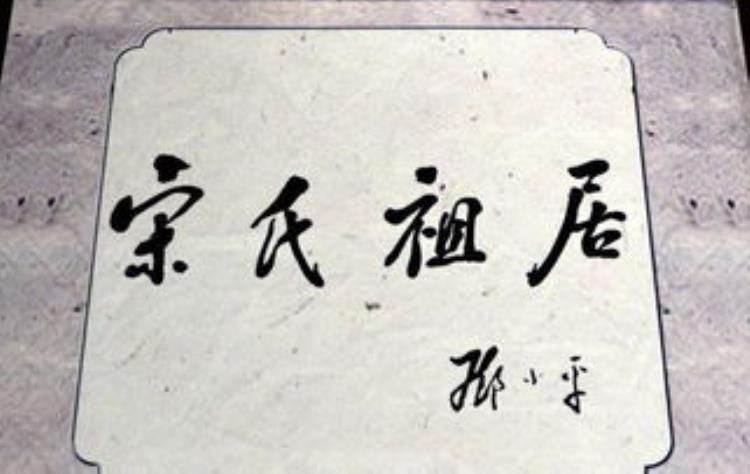 宋氏祖居
邓小平